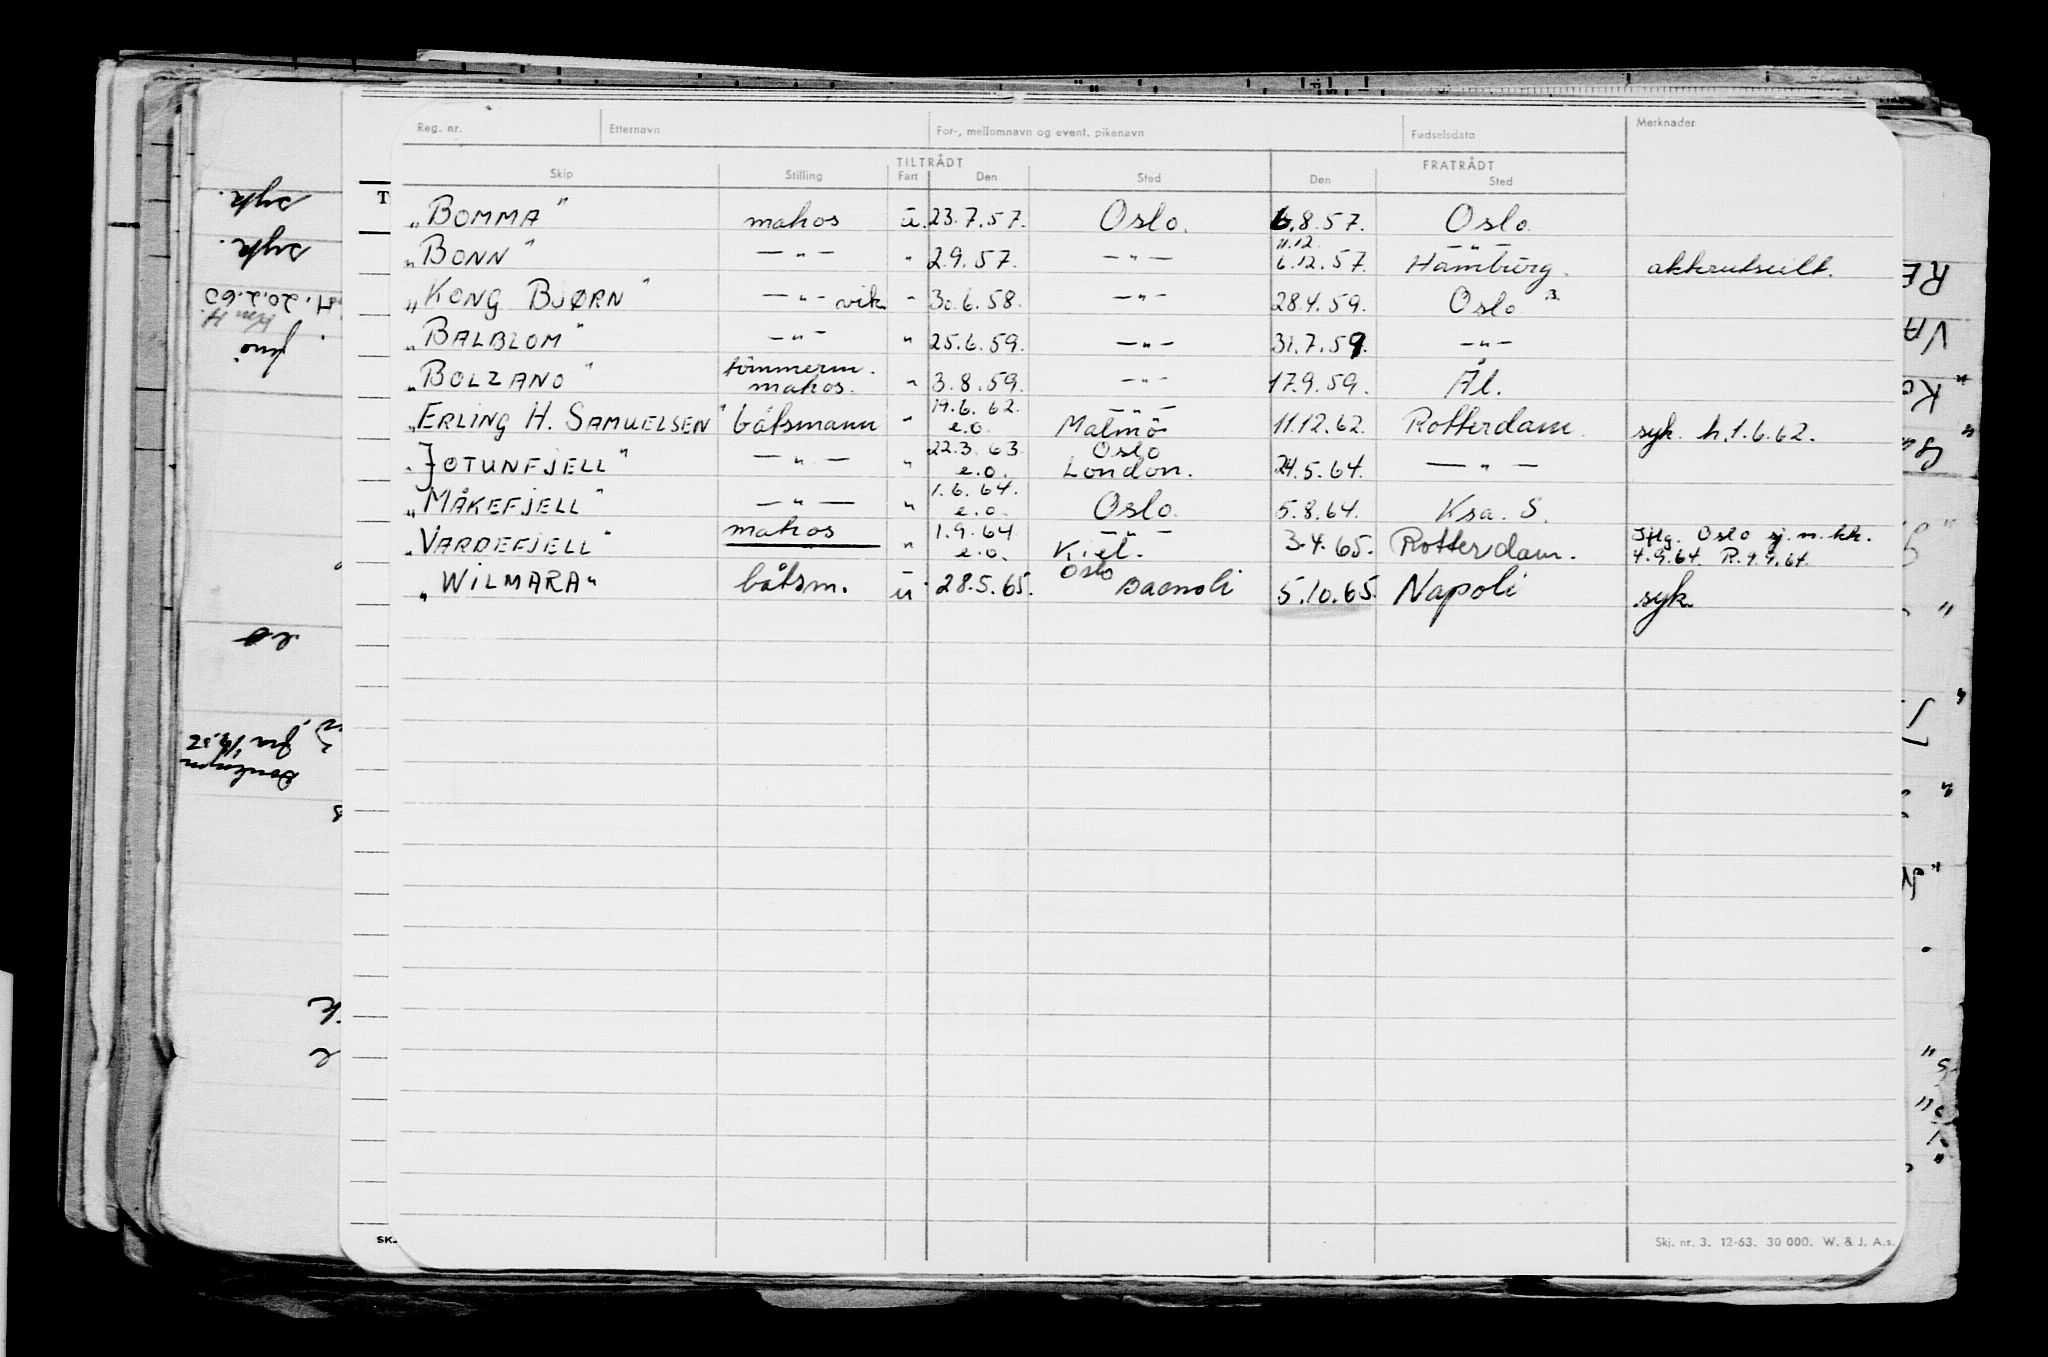 Reg. nr. Etternavn For-, mellomnavn og event. pikenavn Fødselsdato Merknader
TILTRÅDT FRATRÅDT
Skip Stilling Fart Den Sted Den Sted
„BOMMA" matros u. 23.7.57. Oslo. 6.8.57. Oslo
11.12.
„BONN" —„— " 2.9.57. —„— 6.12.57. Hamburg. akterutseilt.
„KONG BJØRN" —„— vik " 30.6.58. —„— 28.4.59. Oslo
„BALBLOM" —„— " 25.6.59. —„— 31.7.59. —„—
tömmerm.
„BOLZANO" matros. " 3.8.59. —„— 17.9.59. Ål.
19.6.62. —„—
„ERLING H. SAMUELSEN" båtsmann " e.o. Malmö 11.12.62. Rotterdam. syk. h.1.6.62.
22.3.63. Oslo
„JOTUNFJELL" —„— " e.o. London. 24.5.64. —„—
1.6.64.
„MÅKEFJELL" —„— " e.o. Oslo. 5.8.64. Ksa. S.
1.9.64. —„— Iflg. Oslo sj.m.kk.
„VARDEFJELL" matros " e.o. Kiel. 3.4.65. Rotterdam. 4.9.64. R.9.9.64.
„WILMARA" båtsm. u 28.5.65. Oslo 5.10.65. Napoli syk.
Skj. nr. 3. 12-63. 30 000. W. & J. A.s.
syk.
syk.
H. 20.2.60
eo